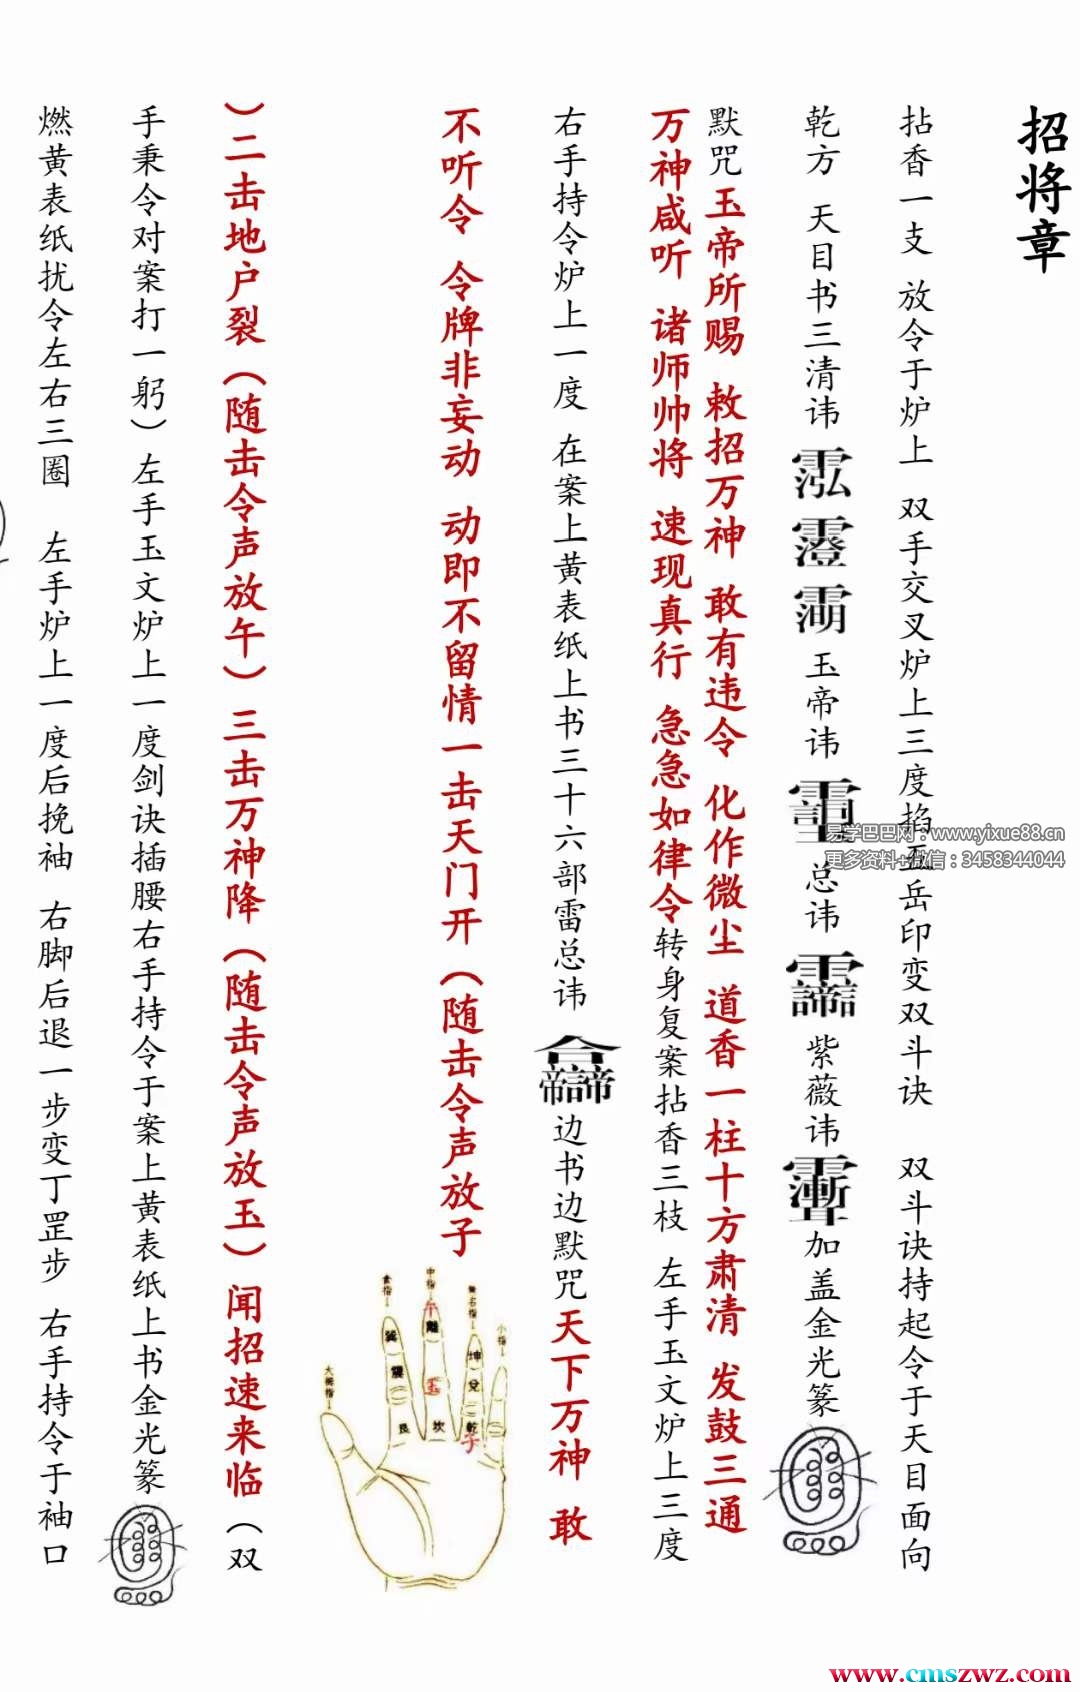 招将章
拈香一支 放令于炉上 双手交叉炉上三度掐五岳印变双斗诀 双斗诀持起令于天目面向
乾方 天目书三清讳 玉帝讳 总讳 紫薇讳 加盖金光篆
默咒玉帝所赐 敕招万神 敢有违令 化作微尘 道香一柱十方肃清 发鼓三通
万神咸听 诸师帅将 速现真行 急急如律令转身复案拈香三枝 左手玉文炉上三度
右手持令炉上一度 在案上黄表纸上书三十六部雷总讳 边书边默咒天下万神 敢
不听令 令牌非妄动 动即不留情一击天门开（随击令声放子
）二击地户裂（随击令声放午）三击万神降（随击令声放玉）闻招速来临（双
手秉令对案打一躬）左手玉文炉上一度剑诀插腰右手持令于案上黄表纸上书金光篆
燃黄表纸扰令左右三圈 左手炉上一度后挽袖 右脚后退一步变丁罡步 右手持令于袖口
大拇指
食指
中指
无名指
小指
巽
離
坤
震
玉
兌
艮
坎
乾
午
子
易学巴巴网：www.yixue88.cn
更多资料+微信：3458344044
www.cmszwz.com